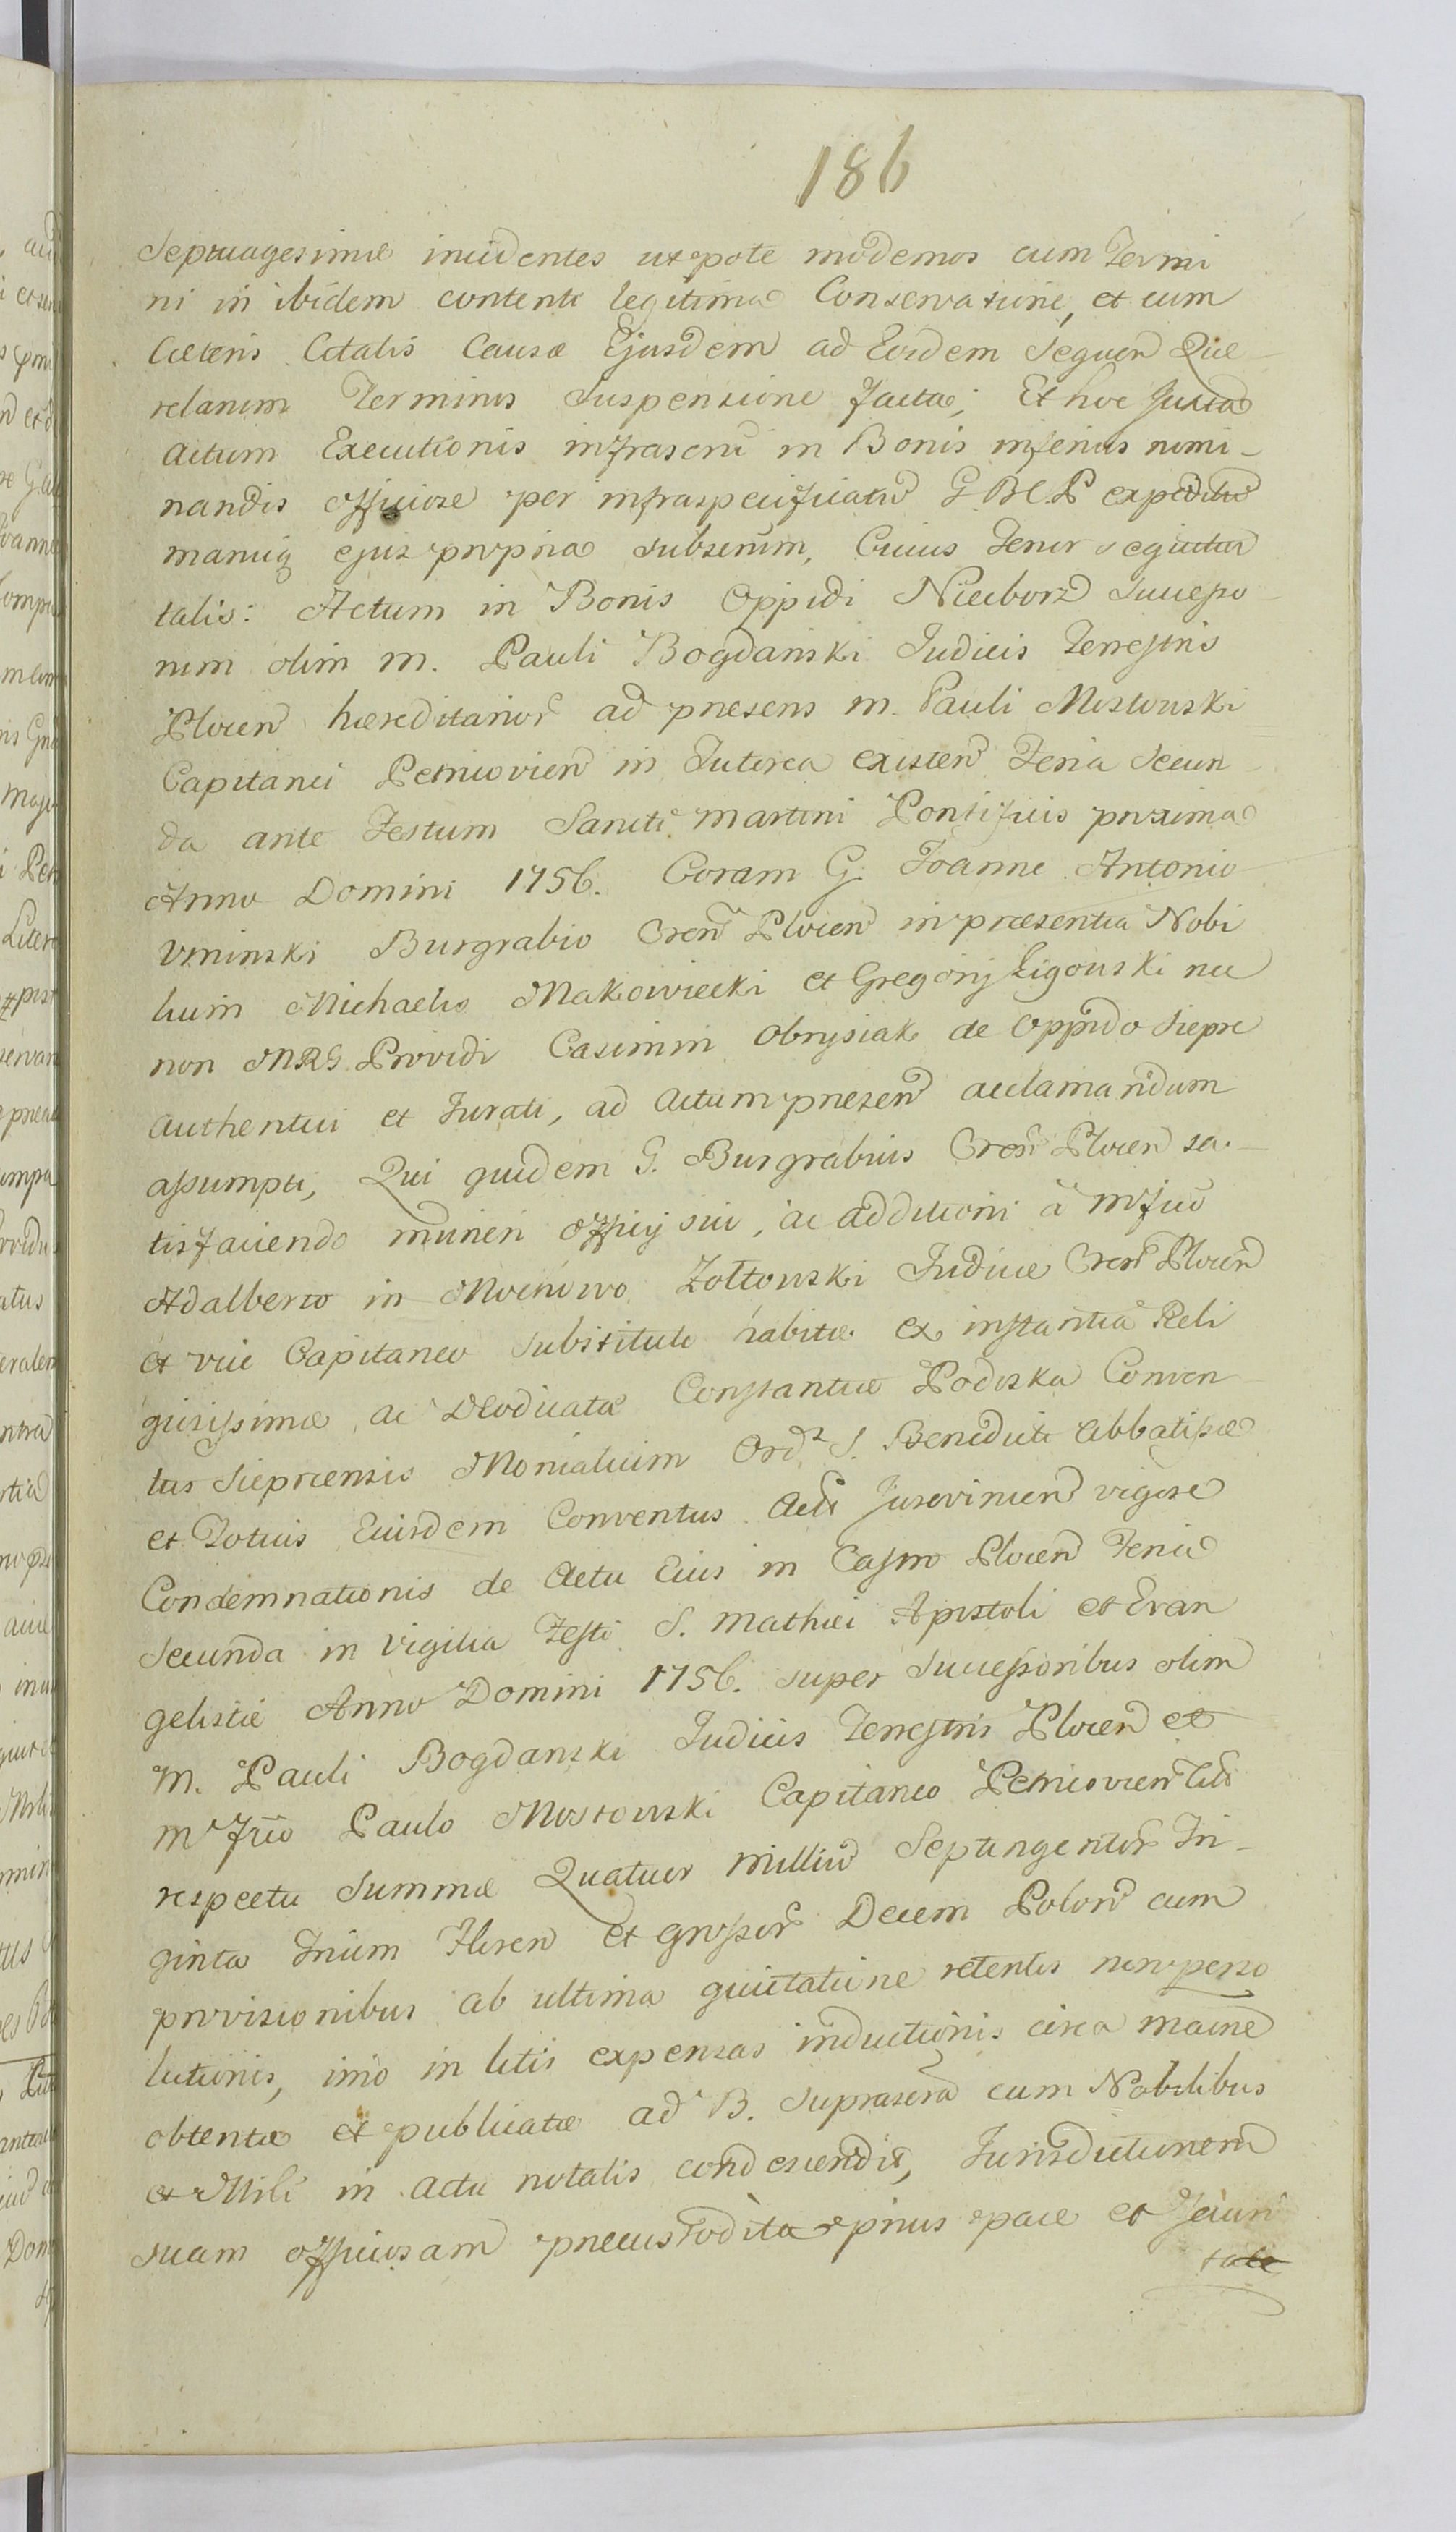 186
Septuagesimæ incidentes utpote modernos cum Termi
ni in ibidem contenti legitima Conservatione, et cum
Cæteris Citatis Causæ Ejusdem ad Eosdem Sequen Que
relarum Terminos Suspensione facta; Et hoc Juxta
actum Executionis infrascrū in Bonis inferius nomi-
nandis officiose per infraspecificatū G B C P expeditū
manuq ejus propria subscrūm, Cuius Tenor sequitur
talis: Actum in Bonis Oppidi Nieeborz Successo
rum olim M. Pauli Bogdanski Judicis Terrestris
Plocen hæreditarior ad præsens M. Pauli Mostowski
Capitanei Petricovien in Tutorea existen Feria Secun
da ante Festum Sancti Martini Pontificis proxima
Anno Domini 1756. Coram G. Joanne Antonio
Uminski Burgrabio Cren Plocen in præsentia Nobi
lium Michaelis Makowiecki et Gregorij Ligowski nec
non MRG Providi Casimiri Obrysiak de Oppido Siepre
authentici et Jurati, ad actum præsen acclamandum
assumpti, Qui quidem G. Burgrabius Cren Plocen sa-
tisfaciendo muneri officij sui, ac additioni à Mfco
Adalberto in Mocnowo Zołtowski Judice Cren Plocen
et vice Capitaneo substituto habitæ ex instantia Reli
giosissimæ ac Deodicatæ Constantiæ Podoska Conven
tus Sieprcensis Monialium Ord S. Benedicti Abbatissæ
et Totius Eiusdem Conventus Actū Jurovincen vigore
Condemnationis de Actu Eius in Castro Plocen Feria
Secunda in Vigilia Festi S. Mathæi Apostoli et Evan
gelistæ Anno Domini 1756. super Successoribus olim
M. Pauli Bogdanski Judicis Terrestris Plocen et
M Fco Paulo Mostowski Capitaneo Petricovien Citis
respectu Summæ Quatuor Milliū Septingentor Tri-
ginta Trium Floren et grossor Decem Polon cum
provisionibus ab ultima quietatione retentis non perso
lutionis, imo in litis expensas inductionis circa maine
obtentæ et publicatæ ad B. suprascra cum Nobilibus
et Mili in actu notatis condescendit, Jurisdictionem
suam officiosam præcustodita prius pace et Securi
tate